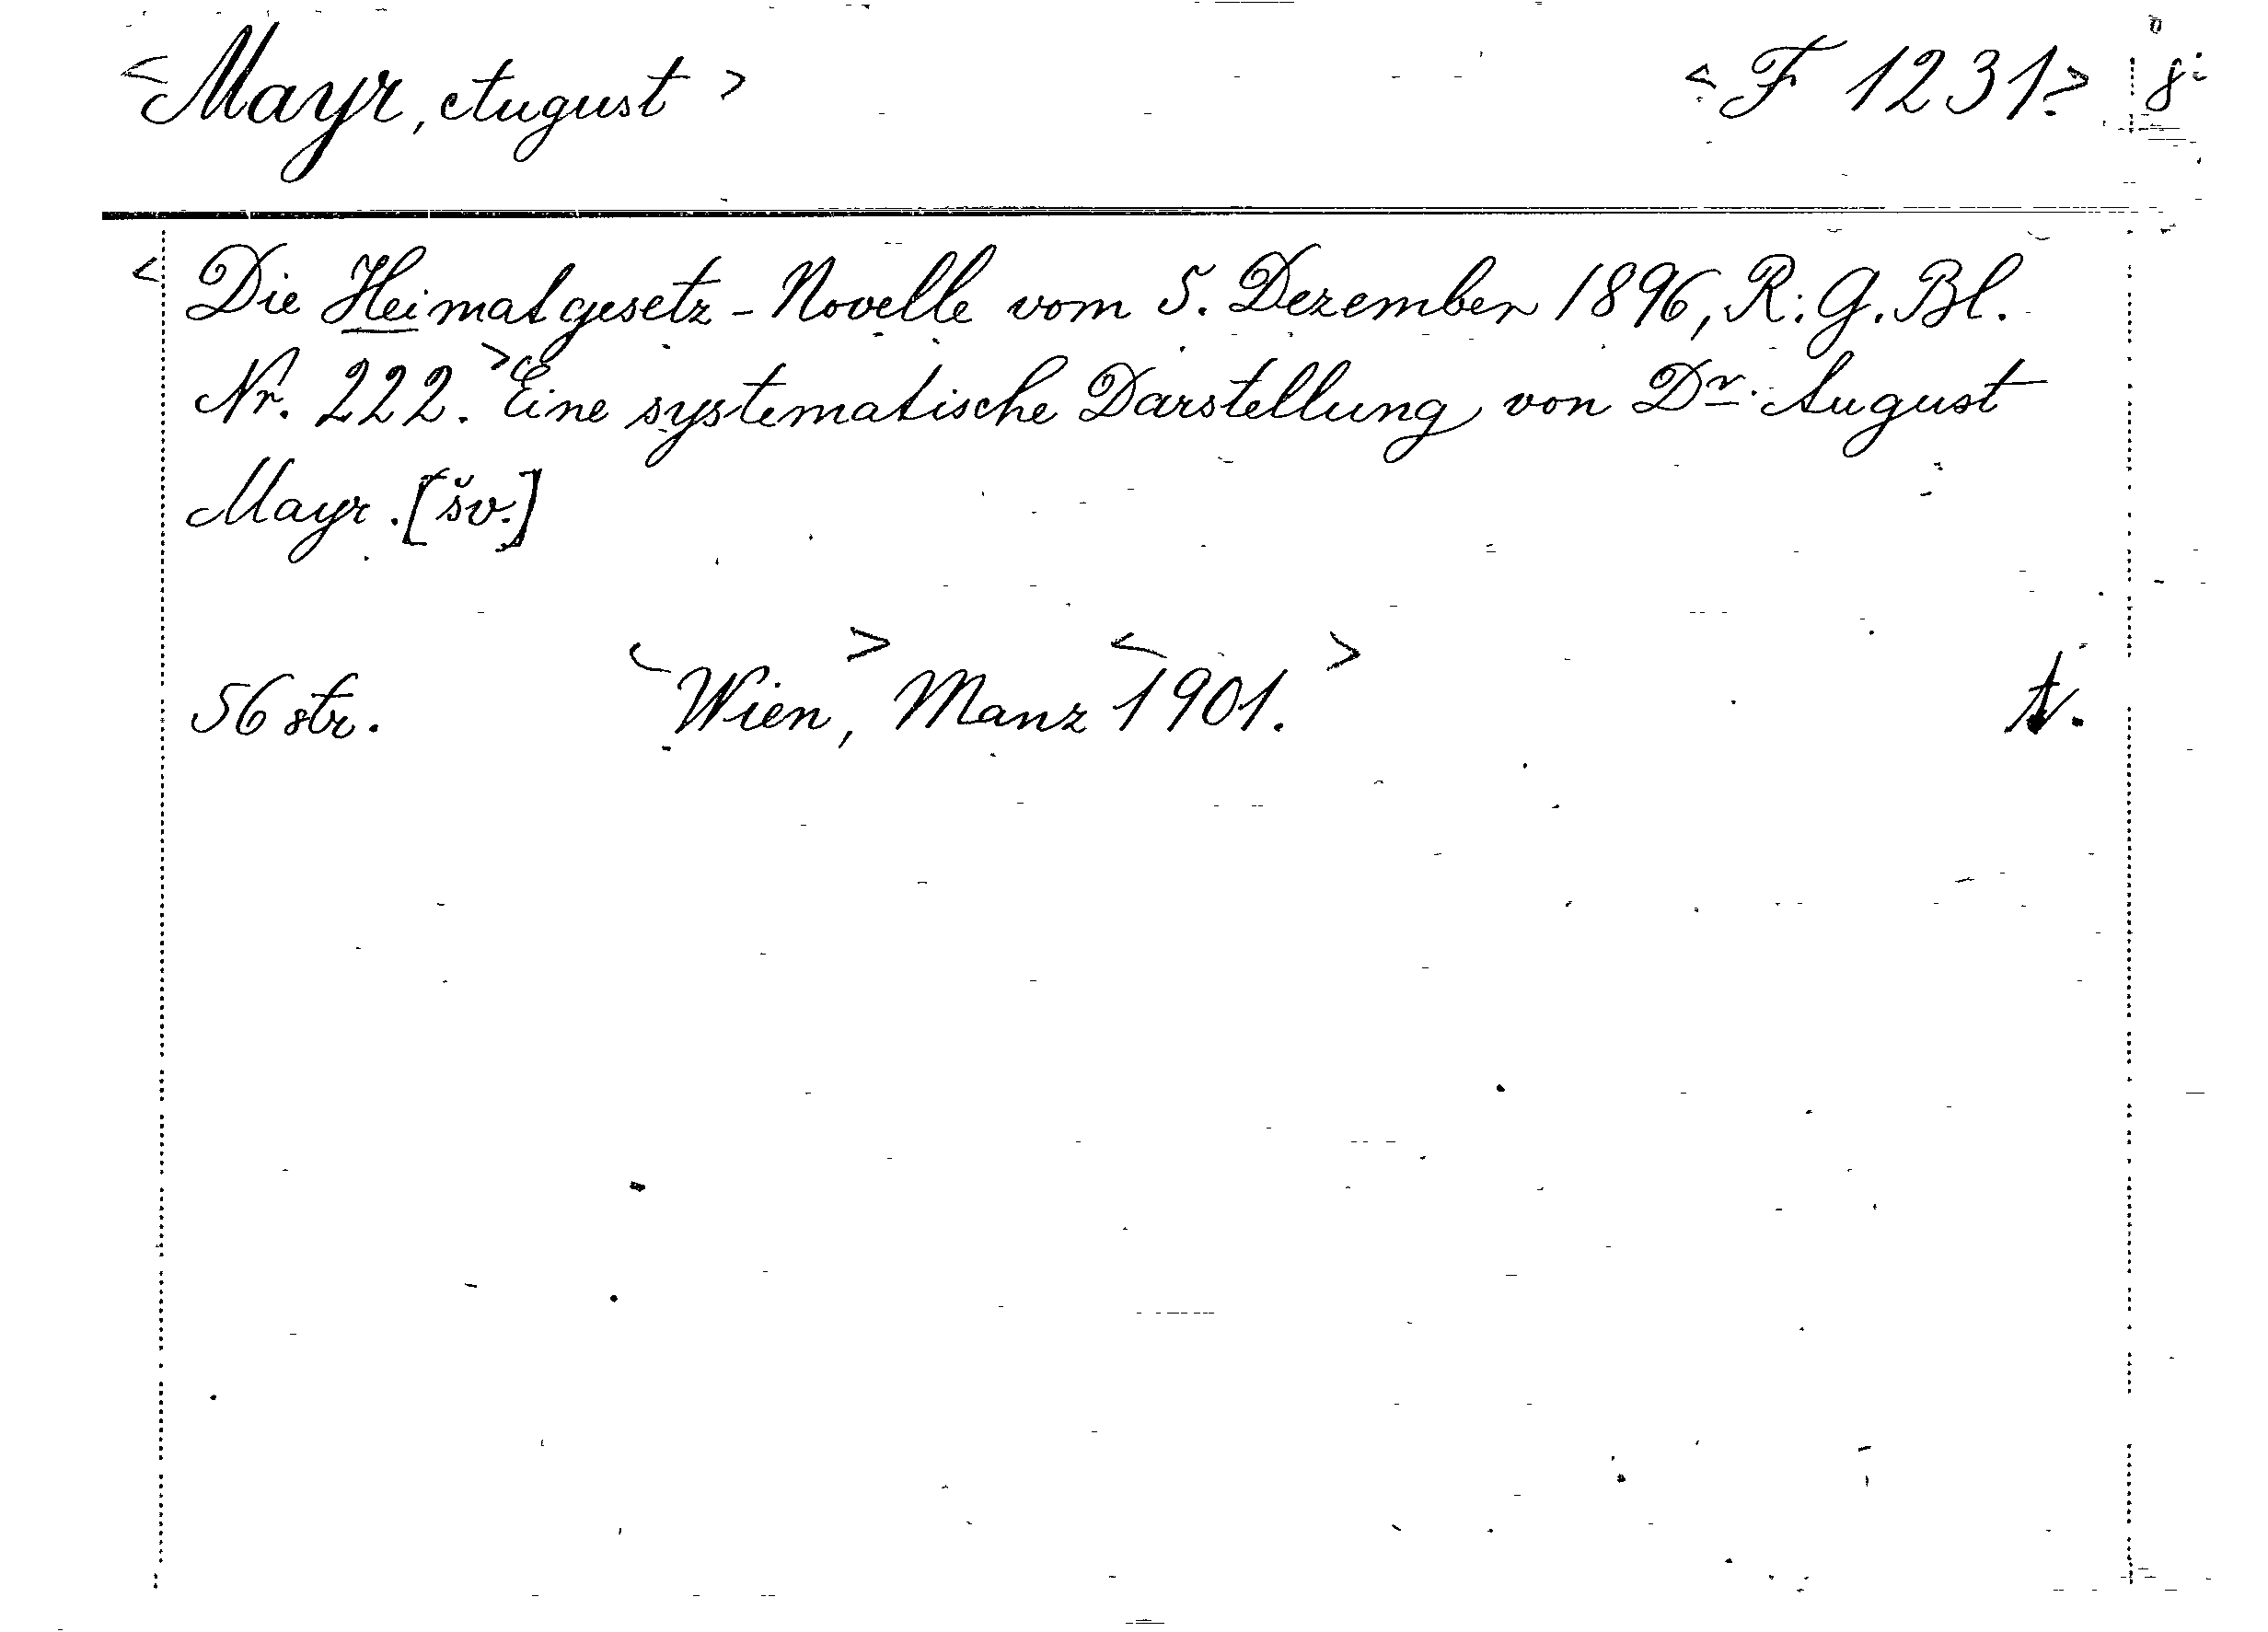 <Mayr, August> <F 1231.>
<Die Heimatgesetz-Novelle vom 5. Dezember 1896, R. G. Bl.
Nr. 222.> Eine systematische Darstellung von Dr. August
Mayr. [šv.]
56 str. <Wien,> Manz <1901.>